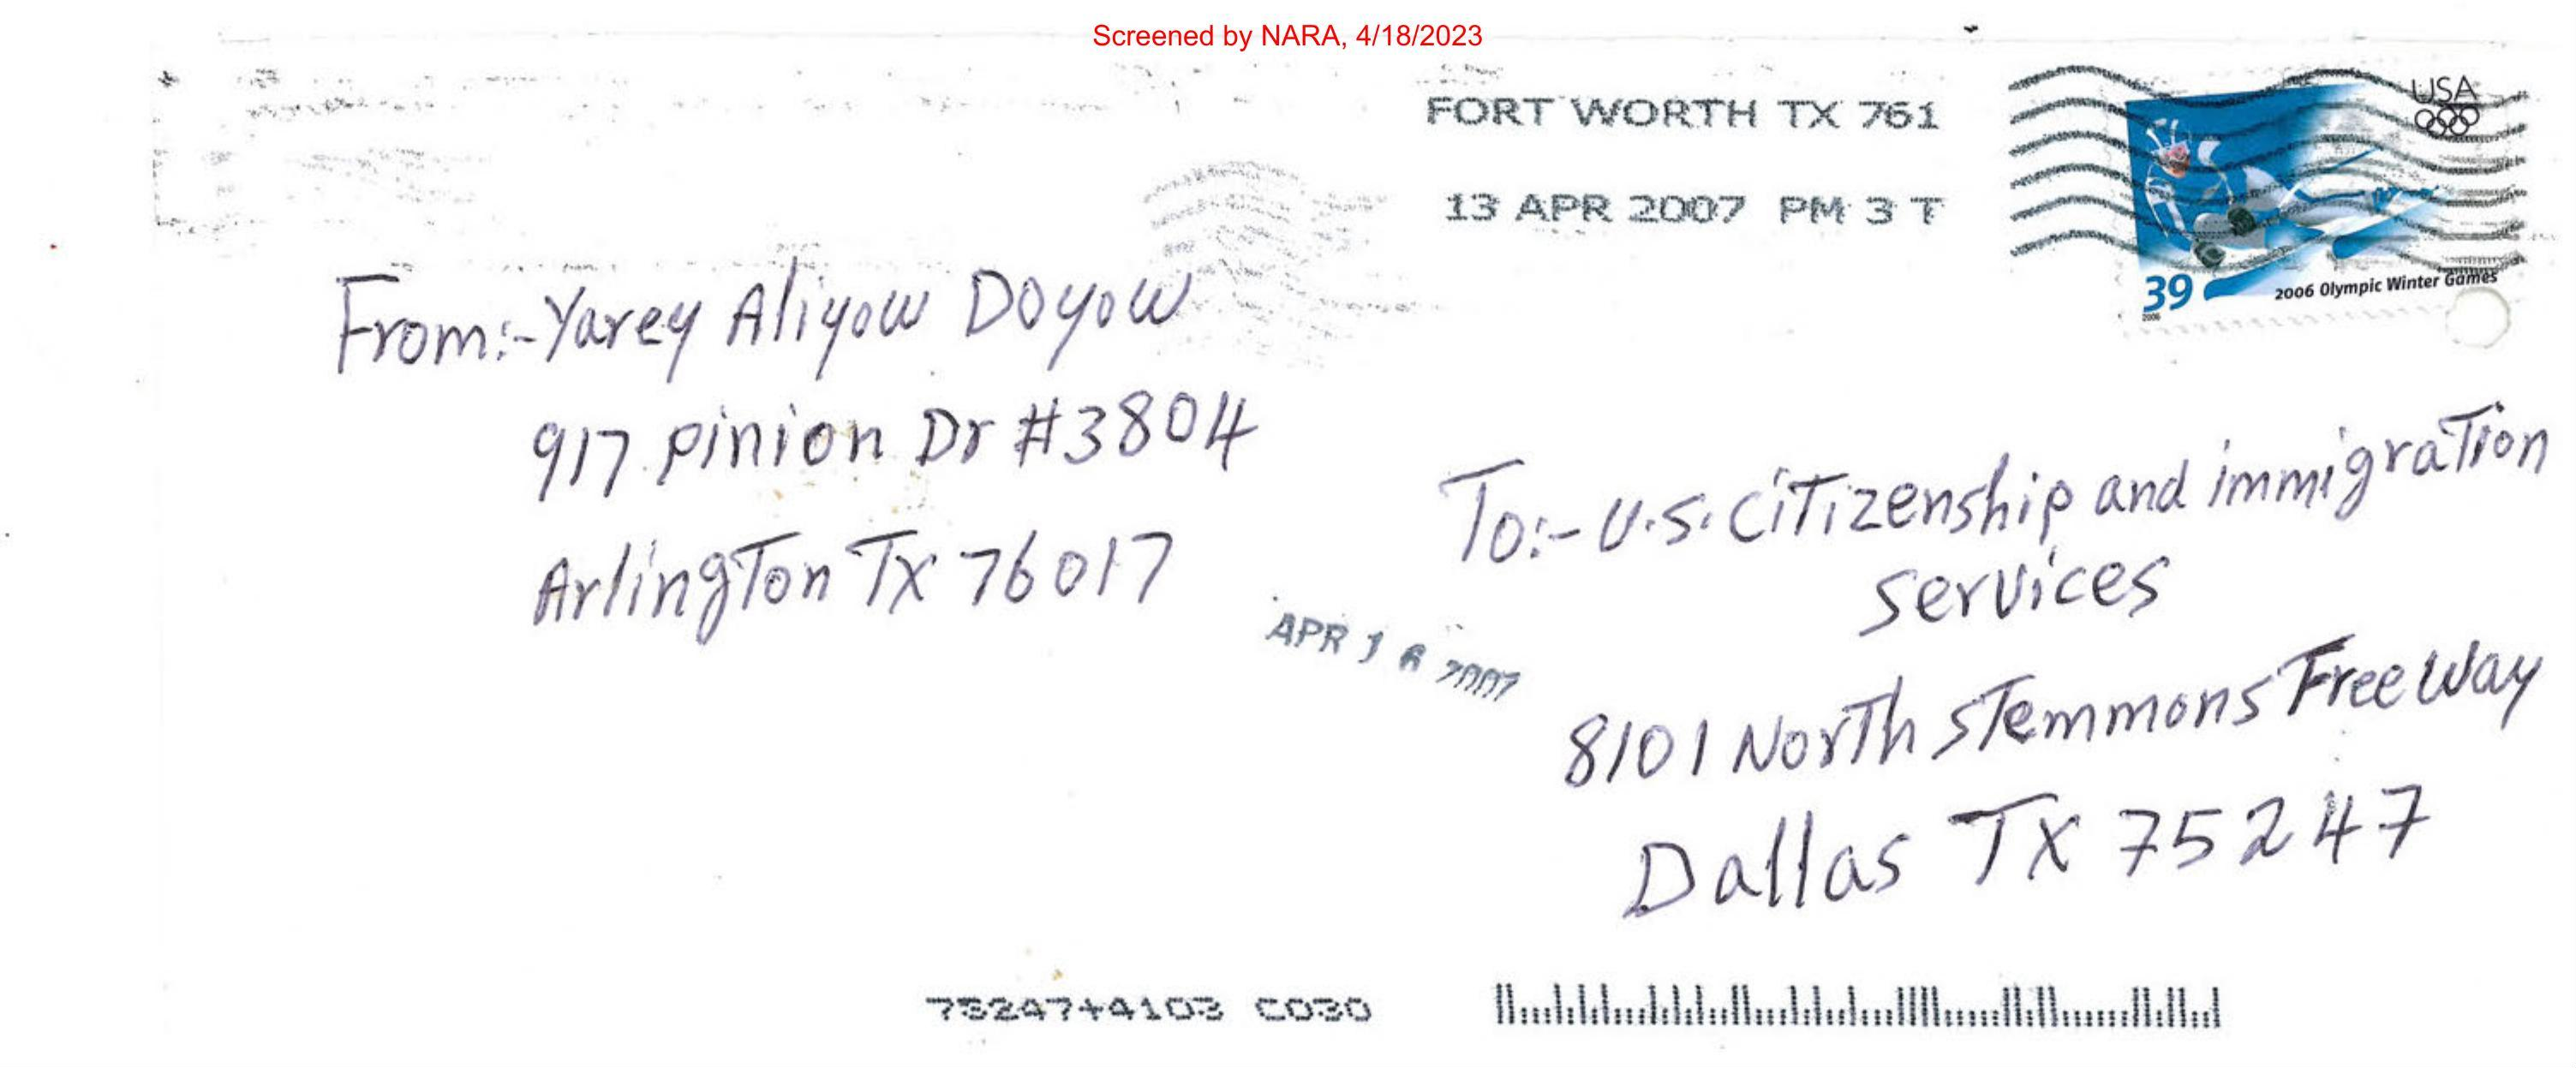 Screened by NARA, 4/18/2023
FORT WORTH TX 761
13 APR 2007 PM 3 T
USA
39
2006 Olympic Winter Games
2006
From:-Yarey Aliyow Doyow
917 pinion Dr #3804
Arlington Tx 76017
To:- U.S. Citizenship and immigration
services
APR 16 2007
8101 North stemmons FreeWay
Dallas TX 75247
75247+4103 C030